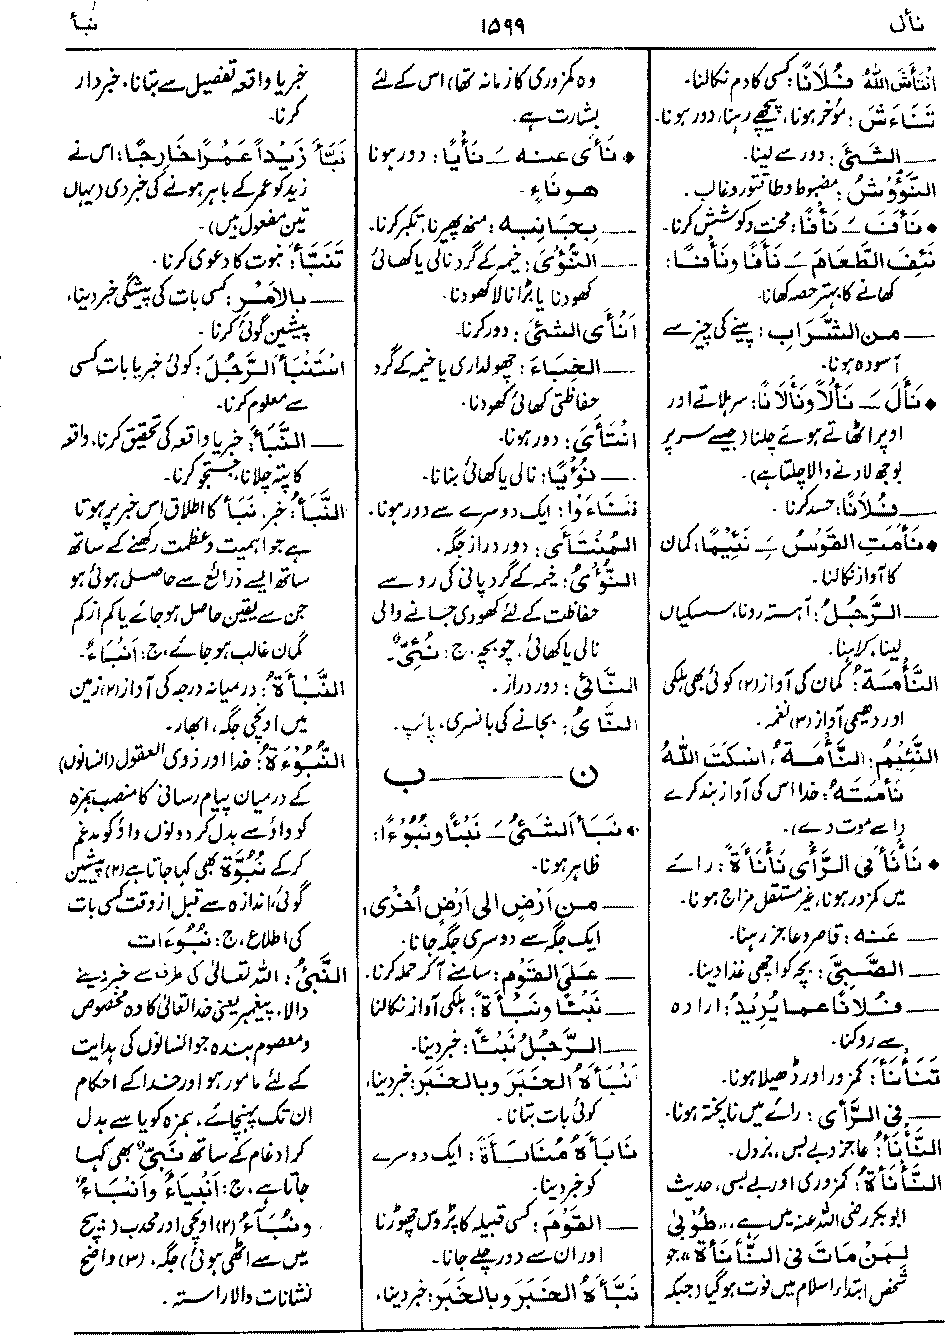 نأل ۱۵۹۹ نبأ
اِنْتَأَشَ اللهُ فُلَانًا: کسی کا دم نکالنا۔
تَنَاءَشَ: مؤخر ہونا، پیچھے رہنا، دور ہونا۔
ــــ الشَّیْءَ: دور سے لینا۔
النَّؤُوْشُ: مضبوط و طاقتور و غالب۔
• نَأَفَ ــَـ نَأْفًا: محنت و کوشش کرنا۔
نَئِفَ الطَّعَامَ ــَـ نَأْفًا ونَأَفًا:
کھانے کا بہتر حصہ کھانا۔
ــــ من الشَّرَابِ: پینے کی چیز سے
آسودہ ہونا۔
• نَأَلَ ــَـ نَأْلًا ونَأَلَانًا: سر ہلاتے اور
اوپر اٹھاتے ہوئے چلنا (جیسے سر پر
بوجھ لادنے والا چلتا ہے)۔
ــــ فُلَانًا: حسد کرنا۔
• نَأَمَتِ القَوْسُ ــِـ نَئِیْمًا: کمان
کا آواز نکالنا۔
ــــ الرَّجُلُ: آہستہ رونا، سسکیاں
لینا، کراہنا۔
النَّأْمَةُ: کمان کی آواز (۲) کوئی بھی ہلکی
اور دھیمی آواز (۳) نغمہ۔
النَّئِیْمُ: النَّأْمَةُ، اَسْكَتَ اللهُ
نَأْمَتَهُ: خدا اس کی آواز بند کرے
(اسے موت دے)۔
• نَأْنَأَ فی الرَّأْیِ نَأْنَأَةً: رائے
میں کمزور ہونا، غیر مستقل مزاج ہونا۔
ــــ عَنْهُ: قاصر و عاجز رہنا۔
ــــ الصَّبِیَّ: بچہ کو اچھی غذا دینا۔
ــــ فُلَانًا عما یُرِیْدُ: ارادہ
سے روکنا۔
تَنَأْنَأَ: کمزور اور ڈھیلا ہونا۔
ــــ فی الرَّأْیِ: رائے میں ناپختہ ہونا۔
النَّأْنَأُ: عاجز و بے بس، بزدل۔
النَّأْنَأَةُ: کمزوری اور بے بسی، حدیث
ابوبکر رضی اللہ عنہ میں ہے، "طُوْبٰی
لِمَنْ مَاتَ فی النَّأْنَأَةِ" جو
شخص ابتداء اسلام میں فوت ہو گیا (جبکہ
وہ کمزوری کا زمانہ تھا) اس کے لئے
بشارت ہے۔
• نَأَی عنه ــَـ نَأْیًا: دور ہونا
هو نَاءٍ۔
ــــ بِجَانِبِهِ: منھ پھیرنا، تکبر کرنا۔
ــــ النُّؤْیَ: خیمہ کے گرد نالی یا کھائی
کھودنا یا بڑا نالا کھودنا۔
اَنْأَی الشَّیْءَ: دور کرنا۔
ــــ الخِبَاءَ: چھولداری یا خیمہ کے گرد
حفاظتی کھائی کھودنا۔
اِنْتَأَی: دور ہونا۔
ــــ نُؤْیًا: نالی یا کھائی بنانا۔
تَنَاءَوْا: ایک دوسرے سے دور ہونا۔
المُنْتَأَی: دور دراز جگہ۔
النُّؤْیُ: خیمہ کے گرد پانی کی رو سے
حفاظت کے لئے کھودی جانے والی
نالی یا کھائی، چوبچہ، ج: نُئِیٌّ۔
النَّائی: دور دراز۔
النَّایُ: بجانے کی بانسری، پائپ۔
ن ــــــــ ب
• نَبَأَ الشَّیْءُ ــَـ نَبْئًا ونُبُوْءًا:
ظاہر ہونا۔
ــــ من اَرْضٍ الی اَرْضٍ اُخْرٰی:
ایک جگہ سے دوسری جگہ جانا۔
ــــ عَلَی القَوْمِ: سامنے آ کر حملہ کرنا۔
ــــ نَبْئًا ونَبْأَةً: ہلکی آواز نکالنا
ــــ الرَّجُلُ نَبْئًا: خبر دینا۔
اَنْبَأَهُ الخَبَرَ وبالخَبَرِ: خبر دینا،
کوئی بات بتانا۔
نَابَأَهُ مُنَابَأَةً: ایک دوسرے
کو خبر دینا۔
ــــ القَوْمَ: کسی قبیلہ کا پڑوس چھوڑنا
اور ان سے دور چلے جانا۔
نَبَّأَهُ الخَبَرَ وبالخَبَرِ: خبر دینا،
خبر یا واقعہ تفصیل سے بتانا، خبردار
کرنا۔
نَبَّأَ زَیْداً عَمْرًا خَارِجًا: اس نے
زید کو عمر کے باہر ہونے کی خبر دی (یہاں
تین مفعول ہیں)۔
تَنَبَّأَ: نبوت کا دعویٰ کرنا۔
ــــ بالأَمْرِ: کسی بات کی پیشگی خبر دینا،
پیشین گوئی کرنا۔
اِسْتَنْبَأَ الرَّجُلَ: کوئی خبر یا بات کسی
سے معلوم کرنا۔
ــــ النَّبَأَ: خبر یا واقعہ کی تحقیق کرنا، واقعہ
کا پتہ چلانا، جستجو کرنا۔
النَّبَأُ: خبر، نَبَأ کا اطلاق اس خبر پر ہوتا
ہے جو اہمیت و عظمت رکھنے کے ساتھ
ساتھ ایسے ذرائع سے حاصل ہوئی ہو
جن سے یقین حاصل ہو جائے یا کم از کم
گمان غالب ہو جائے، ج: اَنْبَاءٌ۔
النَّبْأَةُ: درمیانہ درجہ کی آواز (۲) زمین
میں اونچی جگہ، ابھار۔
النُّبُوْءَةُ: خدا اور ذوی العقول (انسانوں)
کے درمیان پیام رسانی کا منصب ہمزہ
کو واؤ سے بدل کر دونوں واؤ کو مدغم
کر کے نُبُوَّة بھی کہا جاتا ہے (۲) پیشین
گوئی، اندازہ سے قبل از وقت کسی بات
کی اطلاع، ج: نُبُوْءَات
النَّبِیْءُ: اللہ تعالیٰ کی طرف سے خبر دینے
والا، پیغمبر یعنی خدا تعالیٰ کا وہ مخصوص
و معصوم بندہ جو انسانوں کی ہدایت
کے لئے مامور ہو اور خدا کے احکام
ان تک پہنچائے، ہمزہ کو یا سے بدل
کر ادغام کے ساتھ نَبِیّ بھی کہا
جاتا ہے، ج: اَنْبِیَاءُ واَنْبَاءٌ
ونُبَآءُ (۲) اونچی اور محدب (بیچ
میں سے اٹھی ہوئی) جگہ، (۳) واضح
نشانات والا راستہ۔